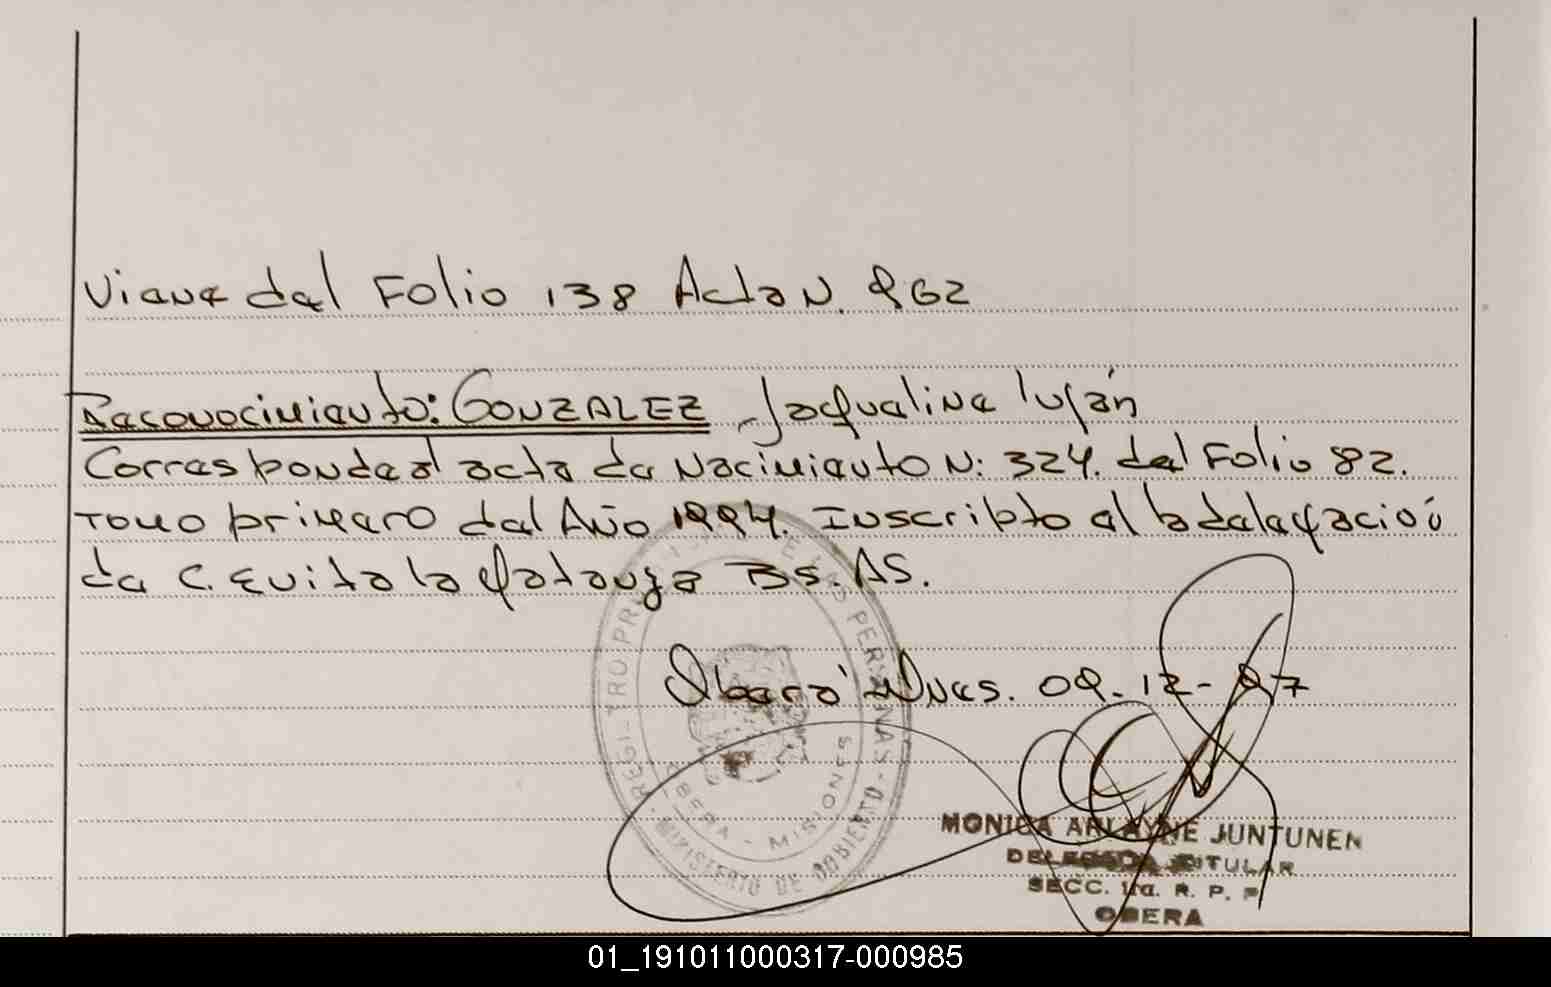 Viene del Folio 138 Acta N. 962
Reconocimiento: GONZALEZ Jaqueline luján
Corresponde al acta de Nacimiento N: 324. del Folio 82.
Tomo primero del Año 1994. Inscripto el la delegación
de C. Evita la Matanza BS. AS.
Oberá Mnes. 09-12-97
REGISTRO PROV DE LAS PERSONAS
OBERA - MISIONES
MINISTERIO DE GOBIERNO
MONICA ARLAYNE JUNTUNEN
DELEGADA TITULAR
SECC. 1ra. R. P. P
OBERA
01_191011000317-000985